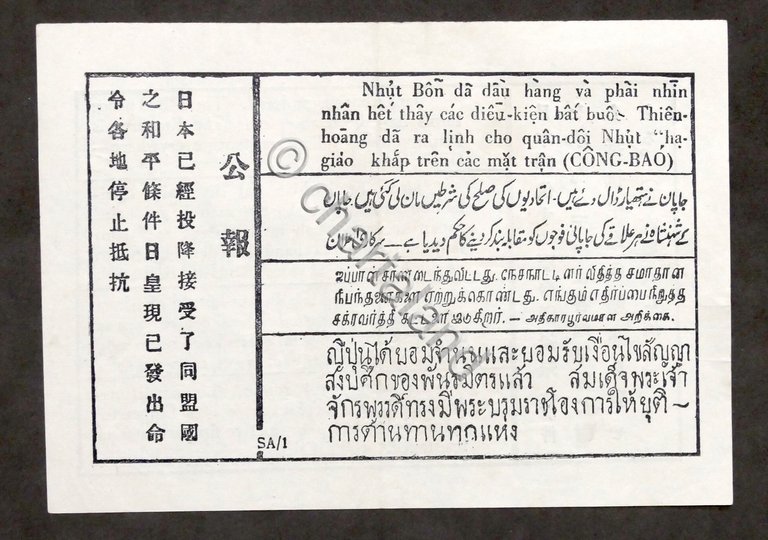 公報
日本已經投降接受了同盟國
之和平條件日皇現已發出命
令各地停止抵抗
Nhựt Bổn đã đầu hàng và phải nhìn
nhân hết thảy các điều-kiện bắt buộc Thiên-
hoàng đã ra lịnh cho quân-đội Nhựt "hạ-
giáo khắp trên các mặt trận (CÔNG-BAO)
جاپان نے ہتھیار ڈال دئے ہیں۔ اتحادیوں کی صلح کی شرطیں مان لی گئی ہیں جاپان
کے شہنشاہ نے ہر علاقے کی جاپانی فوجوں کو مقابلہ بند کر دینے کا حکم دیدیا ہے۔
ஜப்பான் சரணடைந்துவிட்டது. நேசநாட்டினர் விதித்த சமாதான
நிபந்தனைகளை ஏற்றுக்கொண்டது. எங்கும் எதிர்ப்பை நிறுத்த
சக்ரவர்த்தி கட்டளை இடுகிறார். — அதிகாரபூர்வமான அறிக்கை.
ญี่ปุ่นได้ยอมจำนนและยอมรับเงื่อนไขสัญญา
สงบศึกของพันธมิตรแล้ว สมเด็จพระเจ้า
จักรพรรดิ์ทรงมีพระบรมราชโองการให้ยุติ
การต้านทานทุกแห่ง
SA/1
© chartaland